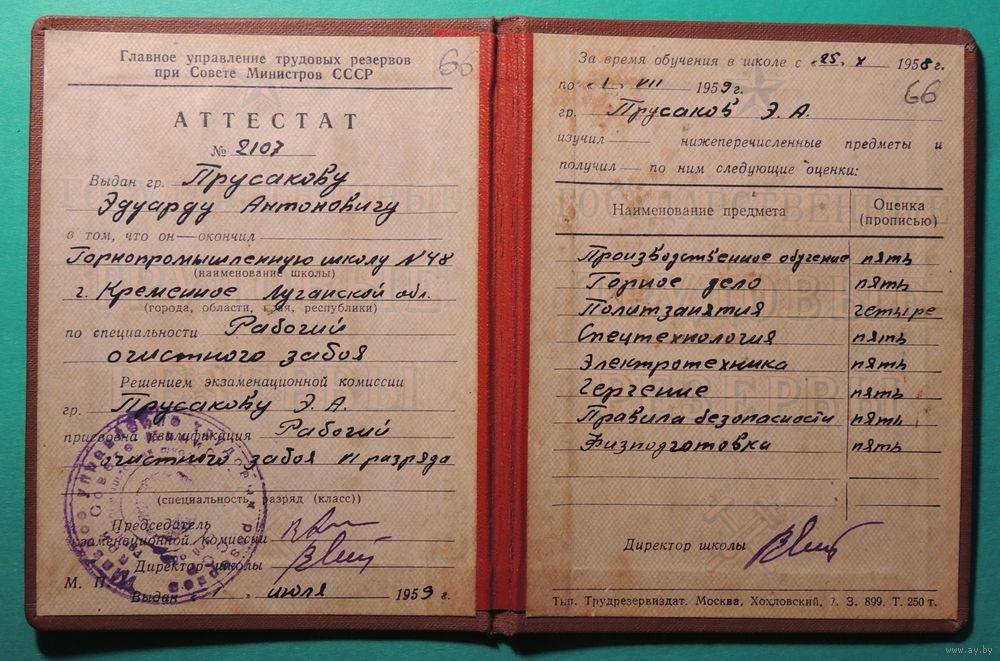 Главное управление трудовых резервов
при Совете Министров СССР
60
АТТЕСТАТ
№ 2107
Выдан гр. Прусакову
Эдуарду Антоновичу
в том, что он—окончил
Горнопромышленную школу №48
(наименование школы)
г. Кременное Луганской обл.
(города, области, края, республики)
по специальности Рабочий
очистного забоя
Решением экзаменационной комиссии
гр. Прусакову Э. А.
присвоена квалификация Рабочий
очистного забоя VI разряда
(специальность, разряд (класс))
Председатель
экзаменационной комиссии
Директор школы
М. П.
Выдан « 1 » июля 1959 г.
За время обучения в школе с «25» X 1958 г.
по «1» VII 1959 г.
66
гр. Прусаков Э. А.
изучил нижеперечисленные предметы и
получил по ним следующие оценки:
Наименование предмета Оценка (прописью)
Производственное обучение пять
Горное дело пять
Политзанятия четыре
Спецтехнология пять
Электротехника пять
Черчение пять
Правила безопасности пять
Физподготовка пять
Директор школы
Тип. Трудрезервиздат. Москва, Хохловский, 7. З. 899. Т. 250 т.
www.ay.by